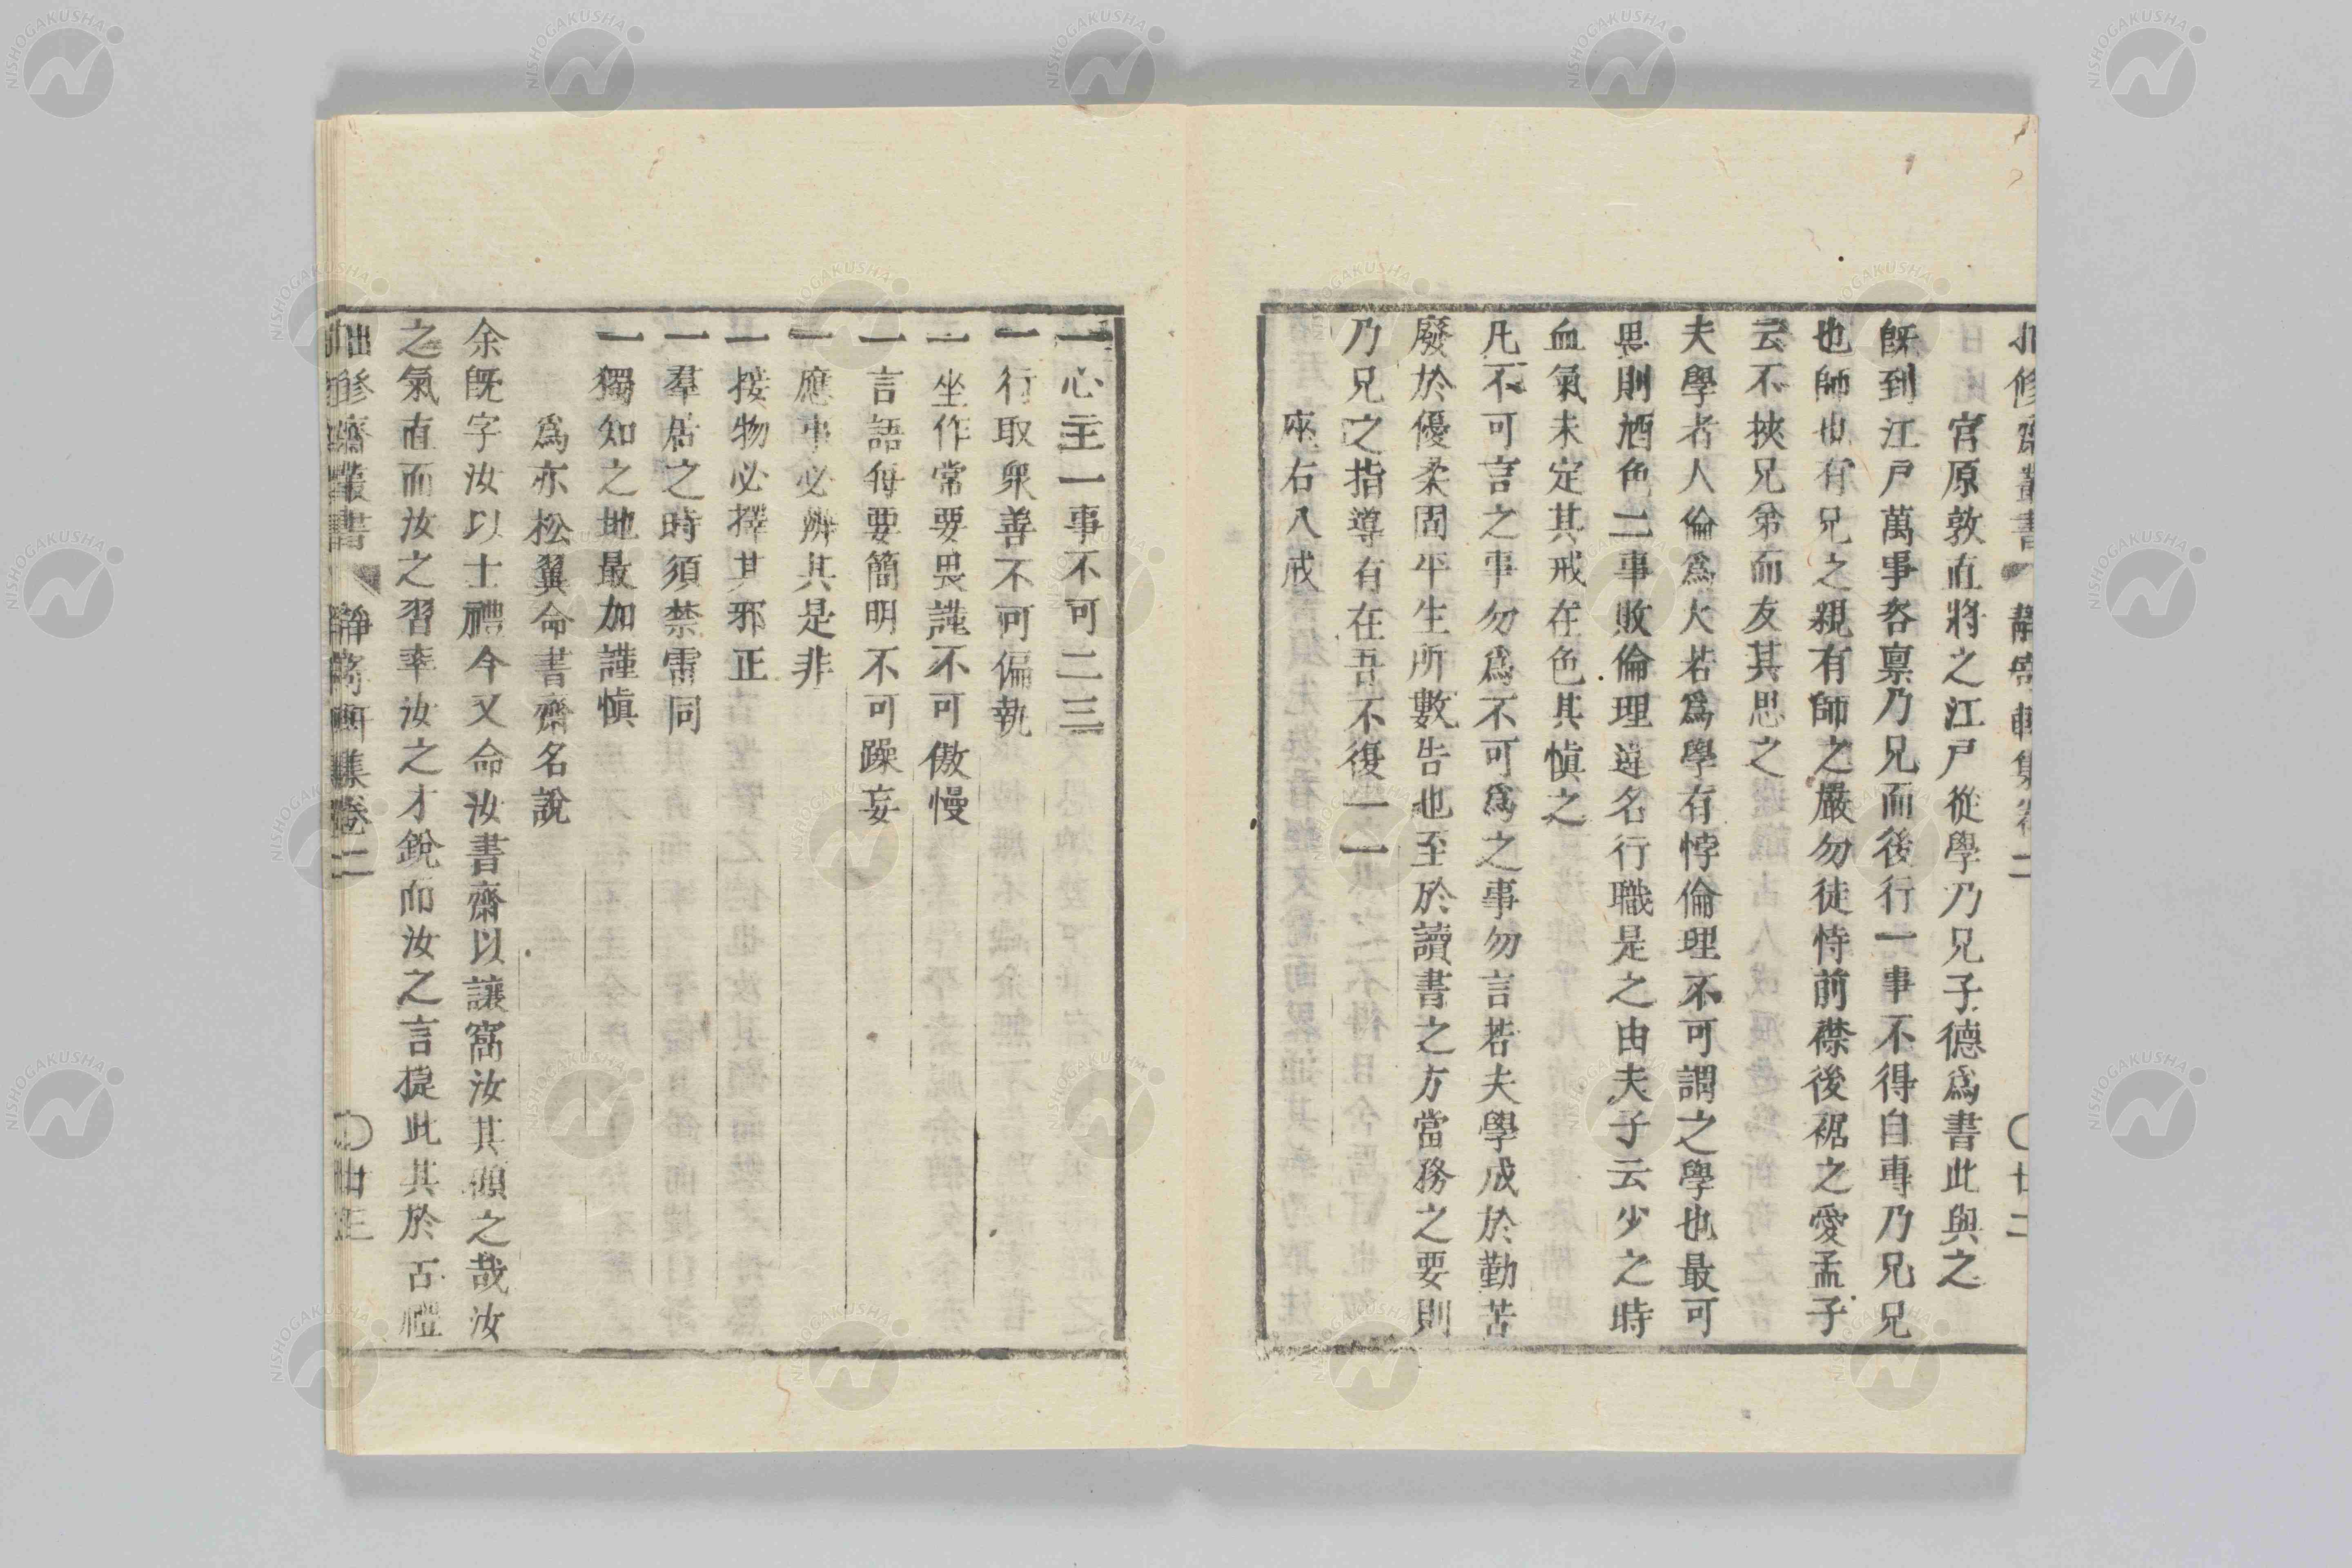 修齋叢書 靜窩軒集卷二 〇廿二
官原敦直將之江戸從學乃兄子德爲書此與之
既到江戸萬事咨稟乃兄而後行一事不得自專乃兄兄
也師也有兄之親有師之嚴勿徒恃前襟後裾之愛孟子
云不挾兄弟而友其思之
夫學者人倫爲大若爲學有悖倫理不可謂之學也最可
畏則酒色二事敗倫理違名行職是之由夫子云少之時
血氣未定其戒在色其愼之
凡不可言之事勿爲不可爲之事勿言若夫學成於勤苦
廢於優柔固平生所數告也至於讀書之方當務之要則
乃兄之指導有在吾不復一一
座右八戒
一心主一事不可二三
一行取衆善不可偏執
一坐作常要畏謹不可傲慢
一言語每要簡明不可躁妄
一應事必辨其是非
一接物必擇其邪正
一羣居之時須禁雷同
一獨知之地最加謹愼
爲亦松翼命書齋名說
余既字汝以士禮今又命汝書齋以讓窩汝其顧之哉汝
之氣直而汝之習率汝之才銳而汝之言捷此其於古禮
修齋叢書 靜窩軒集卷二 〇廿三
NISHOGAKUSHA